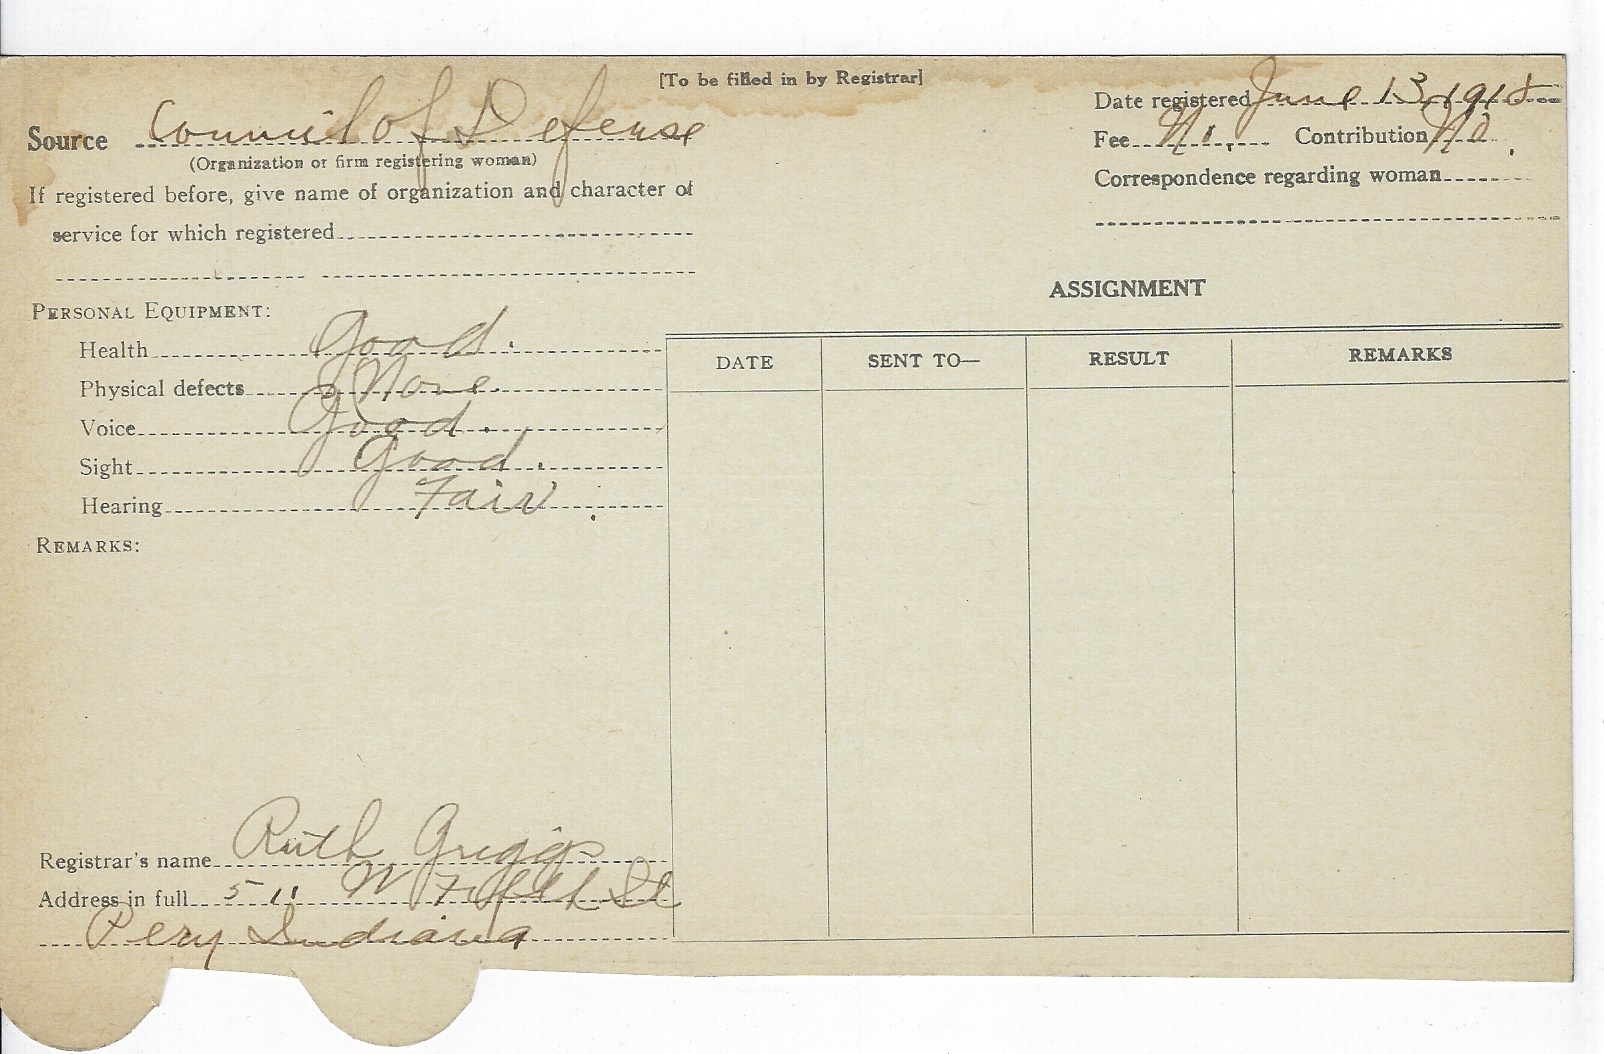 [To be filled in by Registrar]
Source Council of Defense
(Organization or firm registering woman)
If registered before, give name of organization and character of
service for which registered
Date registered June 13, 1918
Fee No. Contribution No.
Correspondence regarding woman
PERSONAL EQUIPMENT:
Health Good.
Physical defects None.
Voice Good.
Sight Good.
Hearing Fair.
REMARKS:
ASSIGNMENT
DATE SENT TO— RESULT REMARKS
Registrar's name Ruth Griggs
Address in full 511 W Fifth St
Peru Indiana